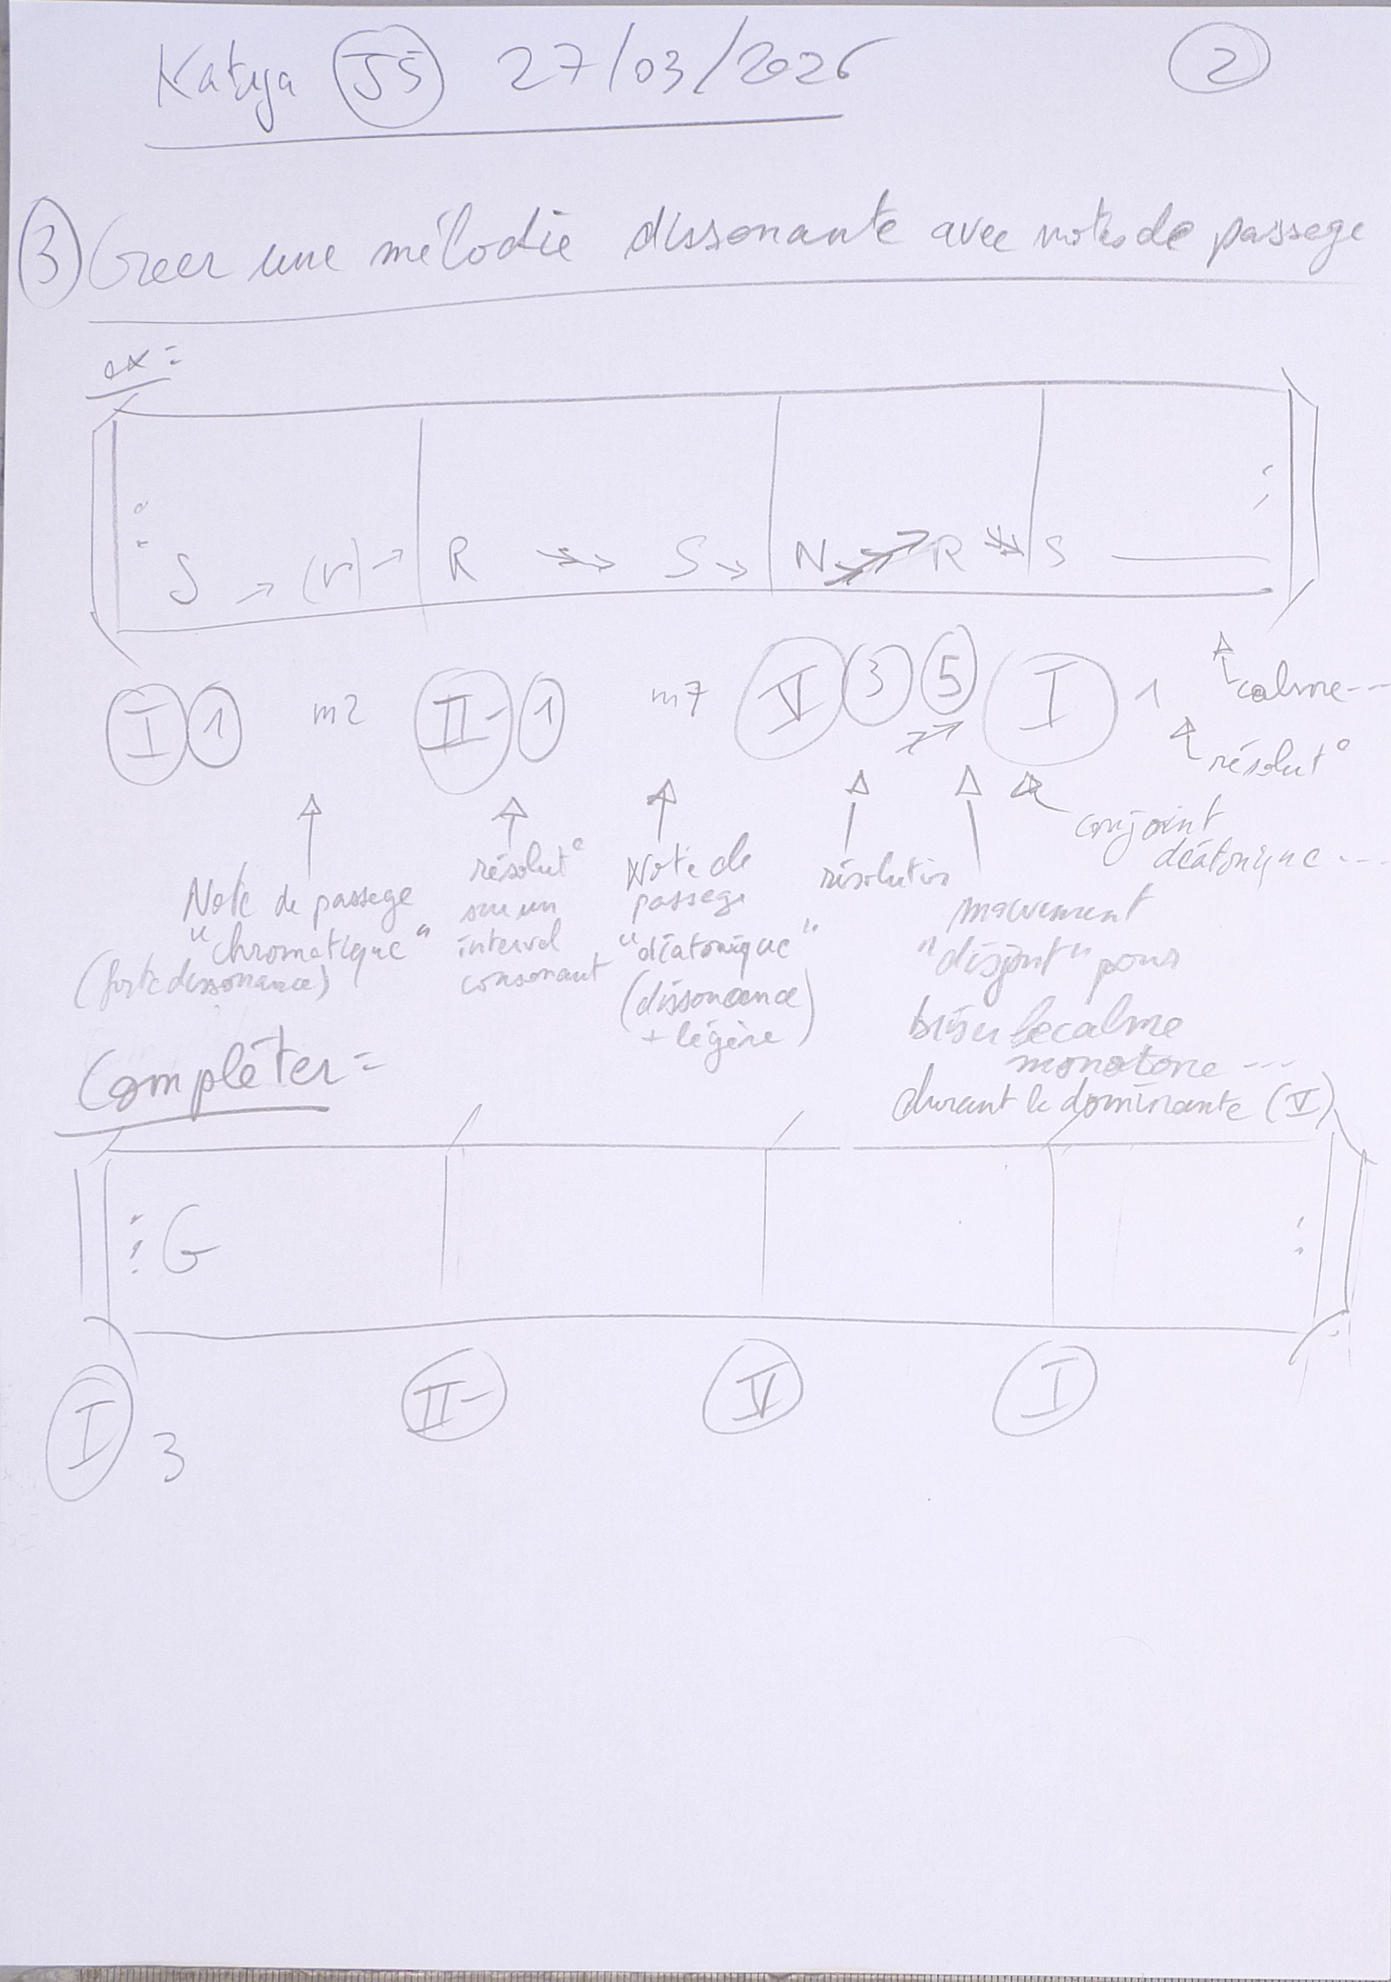 Katya J5 27/03/2026 2
3 Creer une mélodie dissonante avec notes de passage
ex :
S → (r) → R →→ S → N →→→ R →→→ S
I 1 m2 II- 1 m7 V 3 5 I 1
calme---
résolut°
conjoint
diatonique ---
Note de passage
"chromatique"
(forte dissonance)
résolut°
sur un
interval
consonant
Note de
passage
"diatonique"
(dissonance
+ légère)
résolution
mouvement
"disjoint" pour
briser le calme
monotone ---
durant le dominante (V)
Complèter =
G
I 3 II- V I